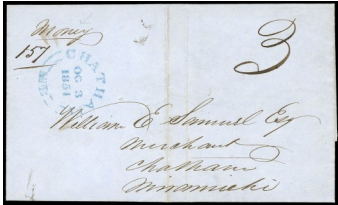 Money
157
CHATHA
OC 3
1851
3
William E Samuel Esq
Merchant
Chatham
Miramichi